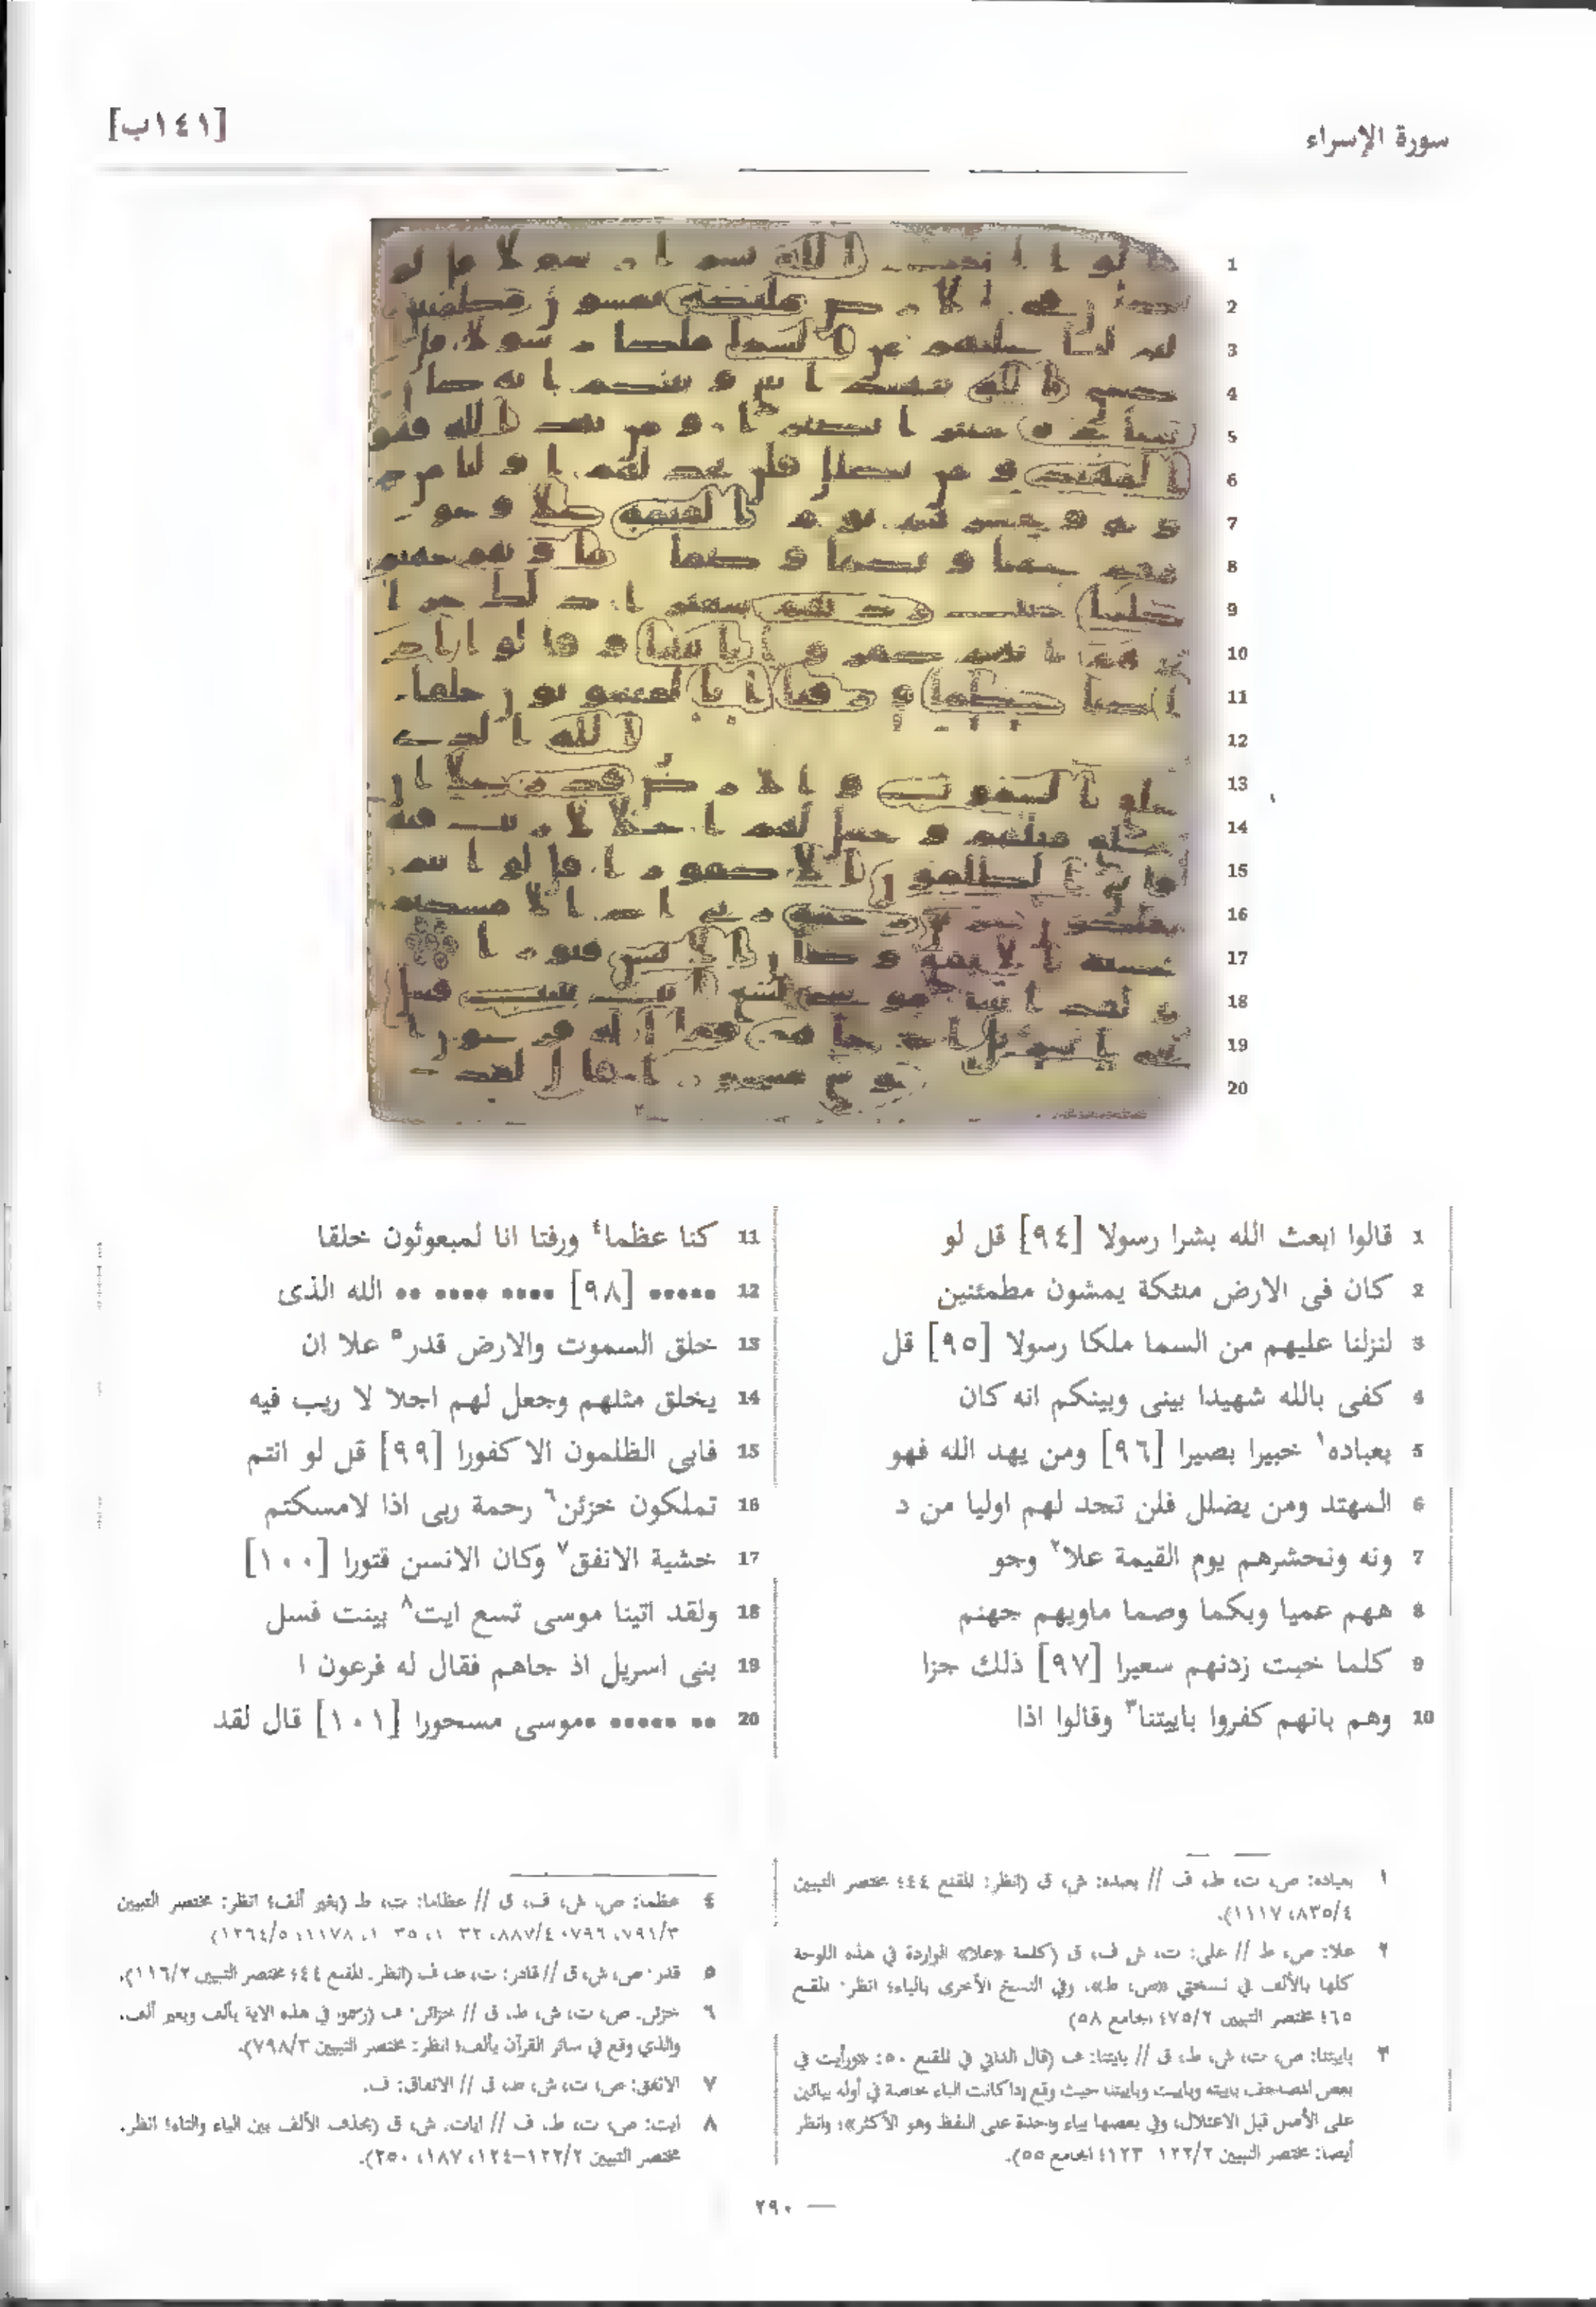 سورة الإسراء
[١٤١ب]
1 قالوا ابعث الله بشرا رسولا [٩٤] قل لو
2 كان فى الارض ملئكة يمشون مطمئنين
3 لنزلنا عليهم من السما ملكا رسولا [٩٥] قل
4 كفى بالله شهيدا بينى وبينكم انه كان
5 بعباده١ خبيرا بصيرا [٩٦] ومن يهد الله فهو
6 المهتد ومن يضلل فلن تجد لهم اوليا من د
7 ونه ونحشرهم يوم القيمة علا٢ وجو
8 ههم عميا وبكما وصما ماويهم جهنم
9 كلما خبت زدنهم سعيرا [٩٧] ذلك جزا
10 وهم بانهم كفروا باييتنا٣ وقالوا اذا
11 كنا عظما٤ ورفتا انا لمبعوثون خلقا
12 ••••• [٩٨] •••• •••• •• الله الذى
13 خلق السموت والارض قدر٥ علا ان
14 يخلق مثلهم وجعل لهم اجلا لا ريب فيه
15 فابى الظلمون الا كفورا [٩٩] قل لو انتم
16 تملكون خزئن٦ رحمة ربى اذا لامسكتم
17 خشية الانفق٧ وكان الانسن قتورا [١٠٠]
18 ولقد اتينا موسى تسع ايت٨ بينت فسل
19 بنى اسريل اذ جاهم فقال له فرعون ا
20 •• ••••• •موسى مسحورا [١٠١] قال لقد
١ بعباده: ص، ت، ط، ف // بعبده: ش، ق (انظر: المقنع ٤٤؛ مختصر التبيين
٨٣٥/٤، ١١١٧).
٢ علا: ص، ط // على: ت، ش، ف، ق (كلمة «علا» الواردة في هذه اللوحة
كلها بالألف في نسختي «ص، ط»، وفي النسخ الأخرى بالياء؛ انظر: المقنع
٦٥؛ مختصر التبيين ٤٧٥/٢؛ الجامع ٥٨)
٣ باييتنا: ص، ت، ش، ط، ق // بايتنا: ف (قال الداني في المقنع ٥٠: «ورأيت في
بعض المصاحف باييته وباييت وباييتنا حيث وقع إذا كانت الباء خاصة في أوله بيائين
على الأصل قبل الاعتلال، وفي بعضها بياء واحدة على اللفظ وهو الأكثر»؛ وانظر
أيضا: مختصر التبيين ١٢٢/٢-١٢٣؛ الجامع ٥٥).
٤ عظما: ص، ش، ف، ق // عظاما: ت، ط (بغير ألف؛ انظر: مختصر التبيين
٥ قدر: ص، ش، ق // قادر: ت، ط، ف (انظر: المقنع ٤٤؛ مختصر التبيين ١١٦/٢).
٦ خزئن: ص، ت، ش، ط، ق // خزائن: ف (رسمو في هذه الآية بألف وبغير ألف،
والذي وقع في سائر القرآن بألف؛ انظر: مختصر التبيين ٧٩٨/٣).
٧ الانفق: ص، ت، ش، ط، ق // الانفاق: ف.
٨ ايت: ص، ت، ط، ف // ايات: ش، ق (بحذف الألف بين الياء والتاء؛ انظر:
مختصر التبيين ١٢٢/٢-١٢٤، ١٨٧، ٢٥٠).
٢٩٠ —